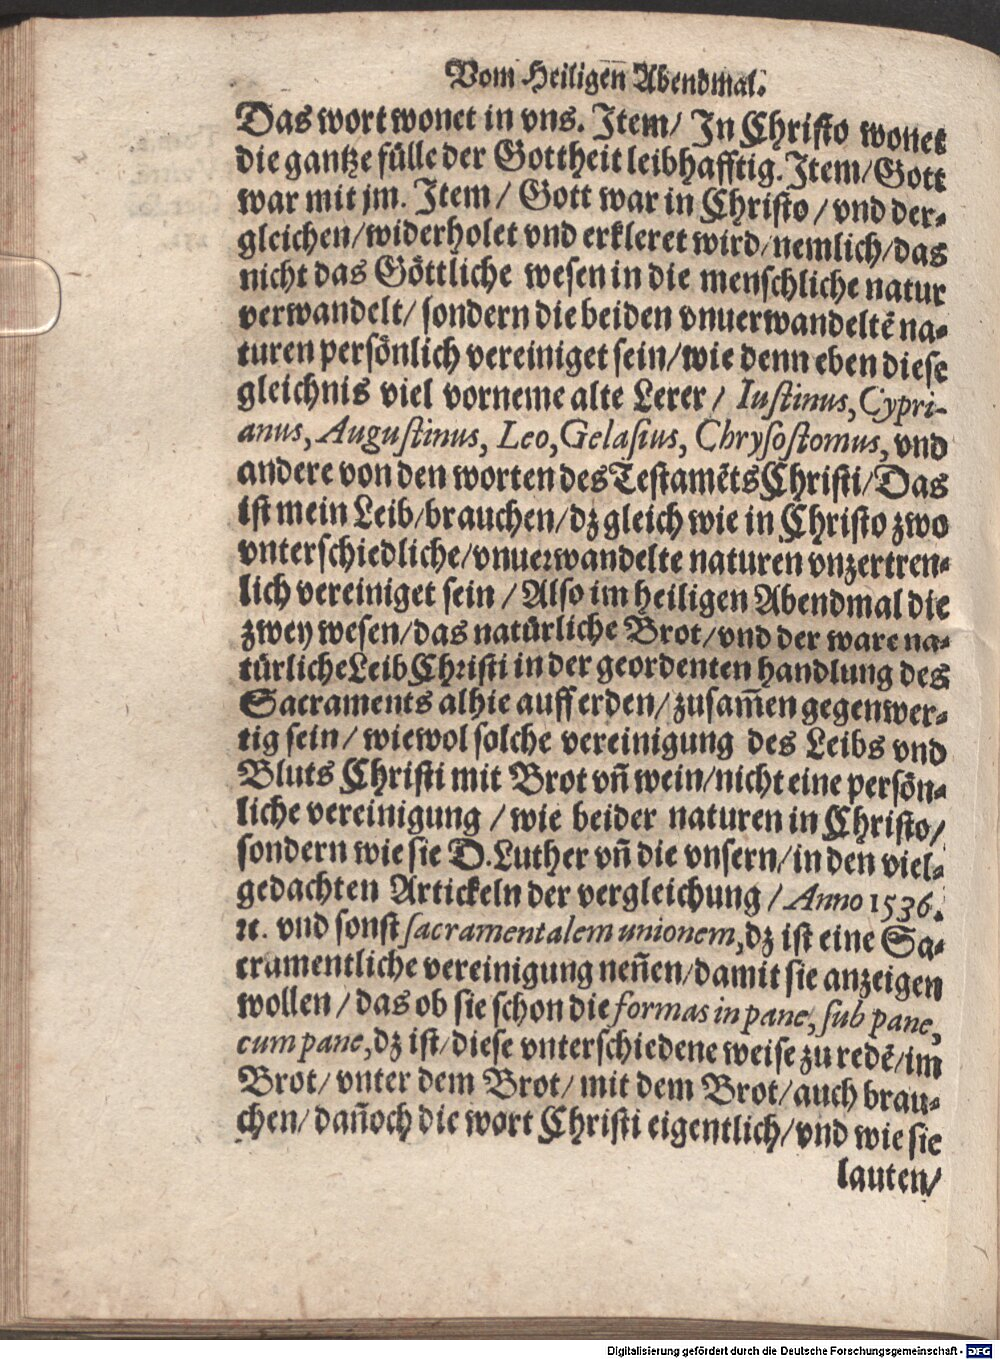 Vom Heiligen Abendmal.
Das wort wonet in vns. Jtem/ Jn Christo wonet
die gantze fülle der Gottheit leibhafftig. Jtem/ Gott
war mit jm. Jtem/ Gott war in Christo/ vnd der-
gleichen/ widerholet vnd erkleret wird/ nemlich/ das
nicht das Göttliche wesen in die menschliche natur
verwandelt/ sondern die beiden vnuerwandeltē na-
turen persönlich vereiniget sein/ wie denn eben diese
gleichnis viel vorneme alte Lerer/ Iustinus, Cypri-
anus, Augustinus, Leo, Gelasius, Chrysostomus, vnd
andere von den worten des Testamēts Christi/ Das
ist mein Leib/ brauchen/ dz gleich wie in Christo zwo
vnterschiedliche/ vnuerwandelte naturen vnzertren-
lich vereiniget sein/ Also im heiligen Abendmal die
zwey wesen/ das natürliche Brot/ vnd der ware na-
türliche Leib Christi in der geordenten handlung des
Sacraments alhie auff erden/ zusam̄en gegenwer-
tig sein/ wiewol solche vereinigung des Leibs vnd
Bluts Christi mit Brot vn̄ wein/ nicht eine persön-
liche vereinigung/ wie beider naturen in Christo/
sondern wie sie D. Luther vn̄ die vnsern/ in den viel-
gedachten Artickeln der vergleichung/ Anno 1536.
ꝛc. vnd sonst sacramentalem unionem, dz ist eine Sa-
cramentliche vereinigung nen̄en/ damit sie anzeigen
wollen/ das ob sie schon die formas in pane, sub pane,
cum pane, dz ist/ diese vnterschiedene weise zu redē/ im
Brot/ vnter dem Brot/ mit dem Brot/ auch brau-
chen/ dan̄och die wort Christi eigentlich/ vnd wie sie
lauten/
Digitalisierung gefördert durch die Deutsche Forschungsgemeinschaft - DFG